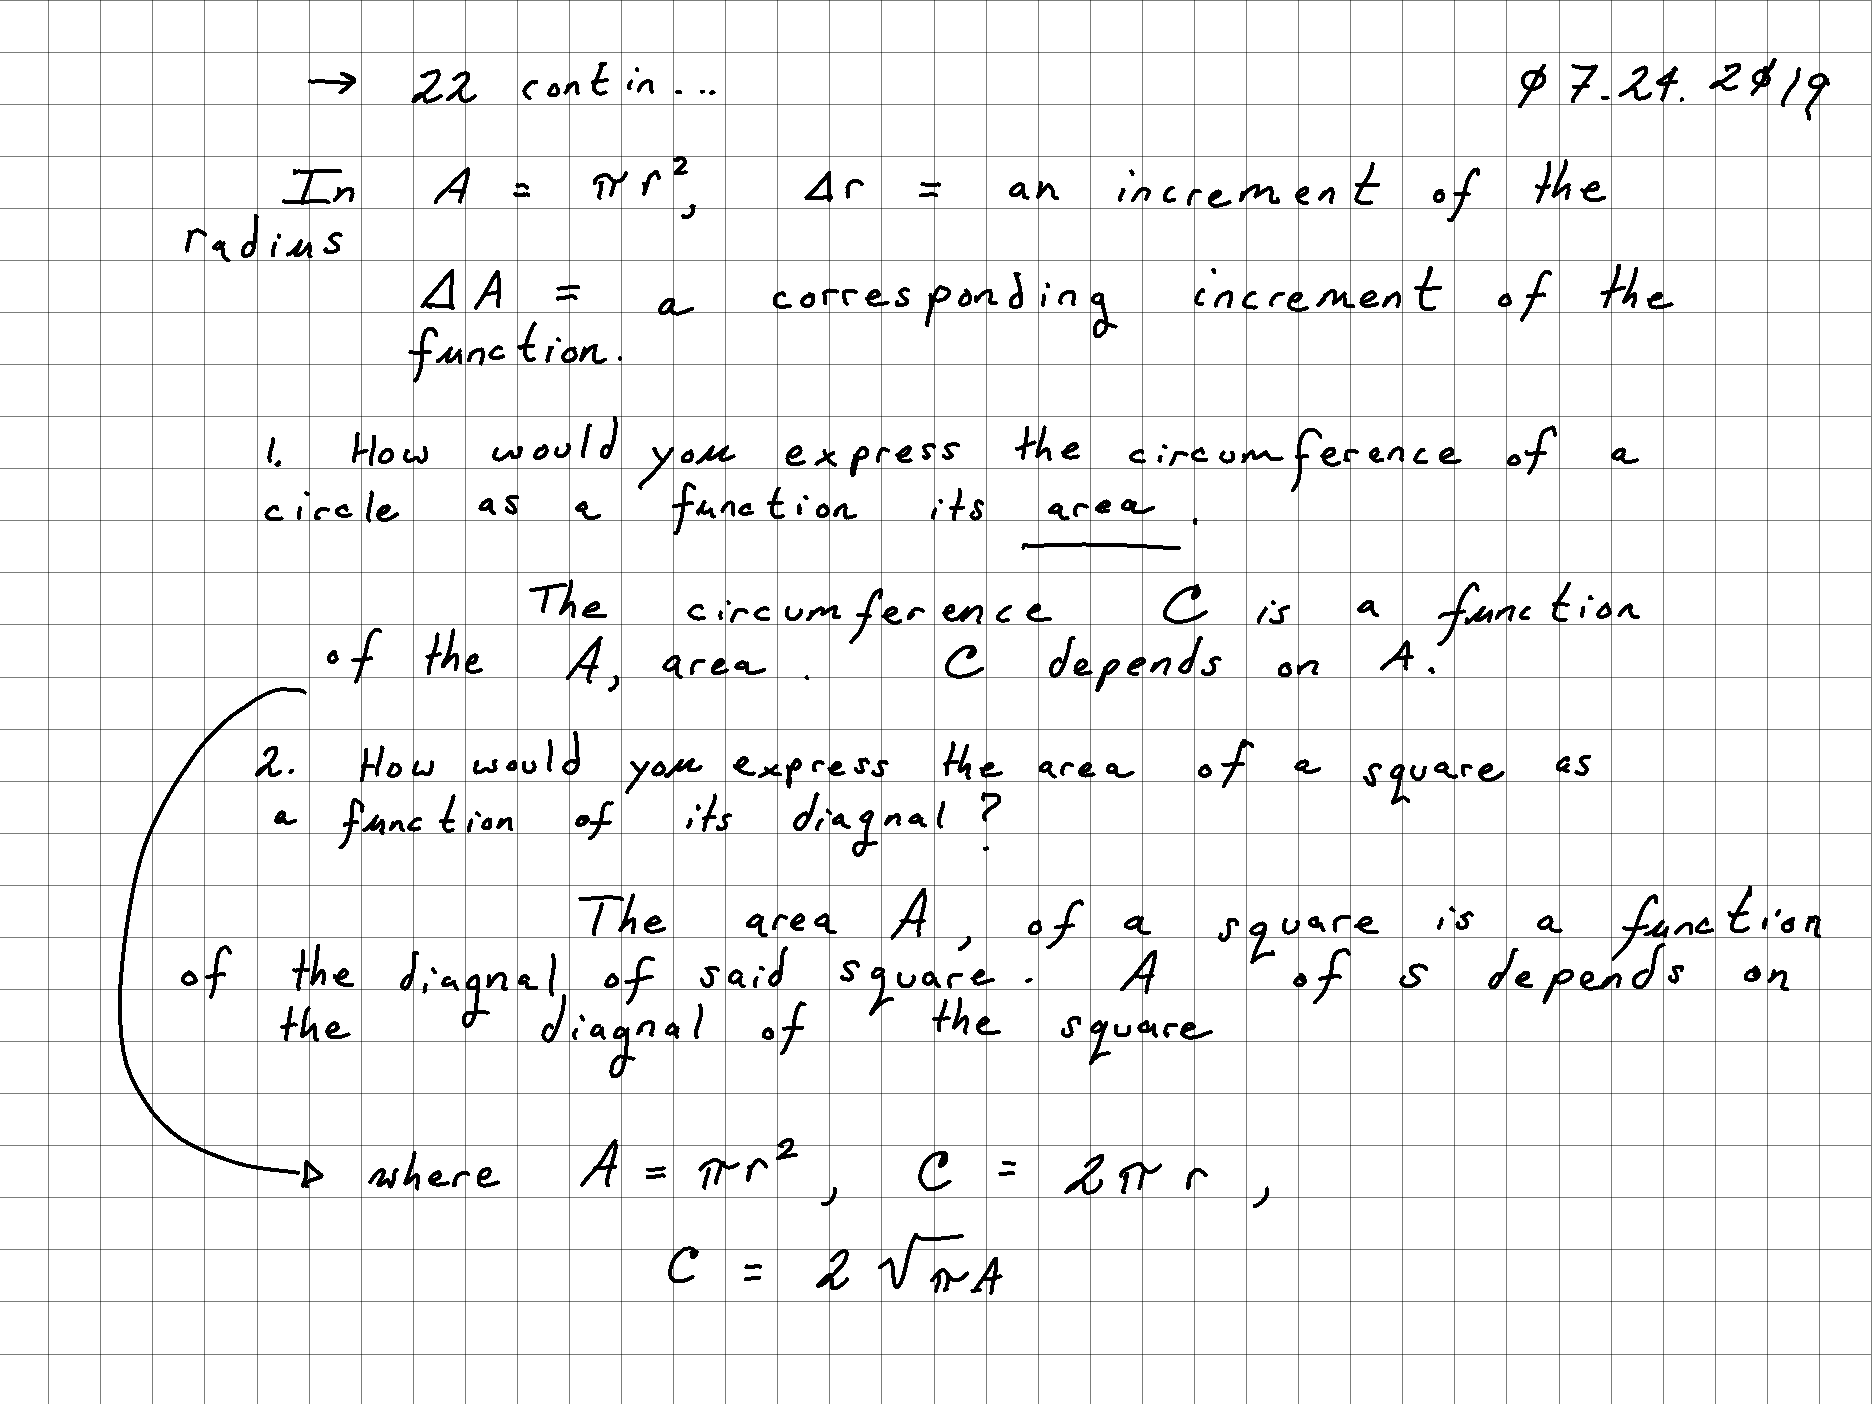 → 22 contin... 07.24.2019
In A = πr², Δr = an increment of the
radius
ΔA = a corresponding increment of the
function.
1. How would you express the circumference of a
circle as a function its area.
The circumference C is a function
of the A, area. C depends on A.
2. How would you express the area of a square as
a function of its diagnal?
The area A, of a square is a function
of the diagnal of said square. A of s depends on
the diagnal of the square
where A = πr², C = 2πr,
C = 2√πA